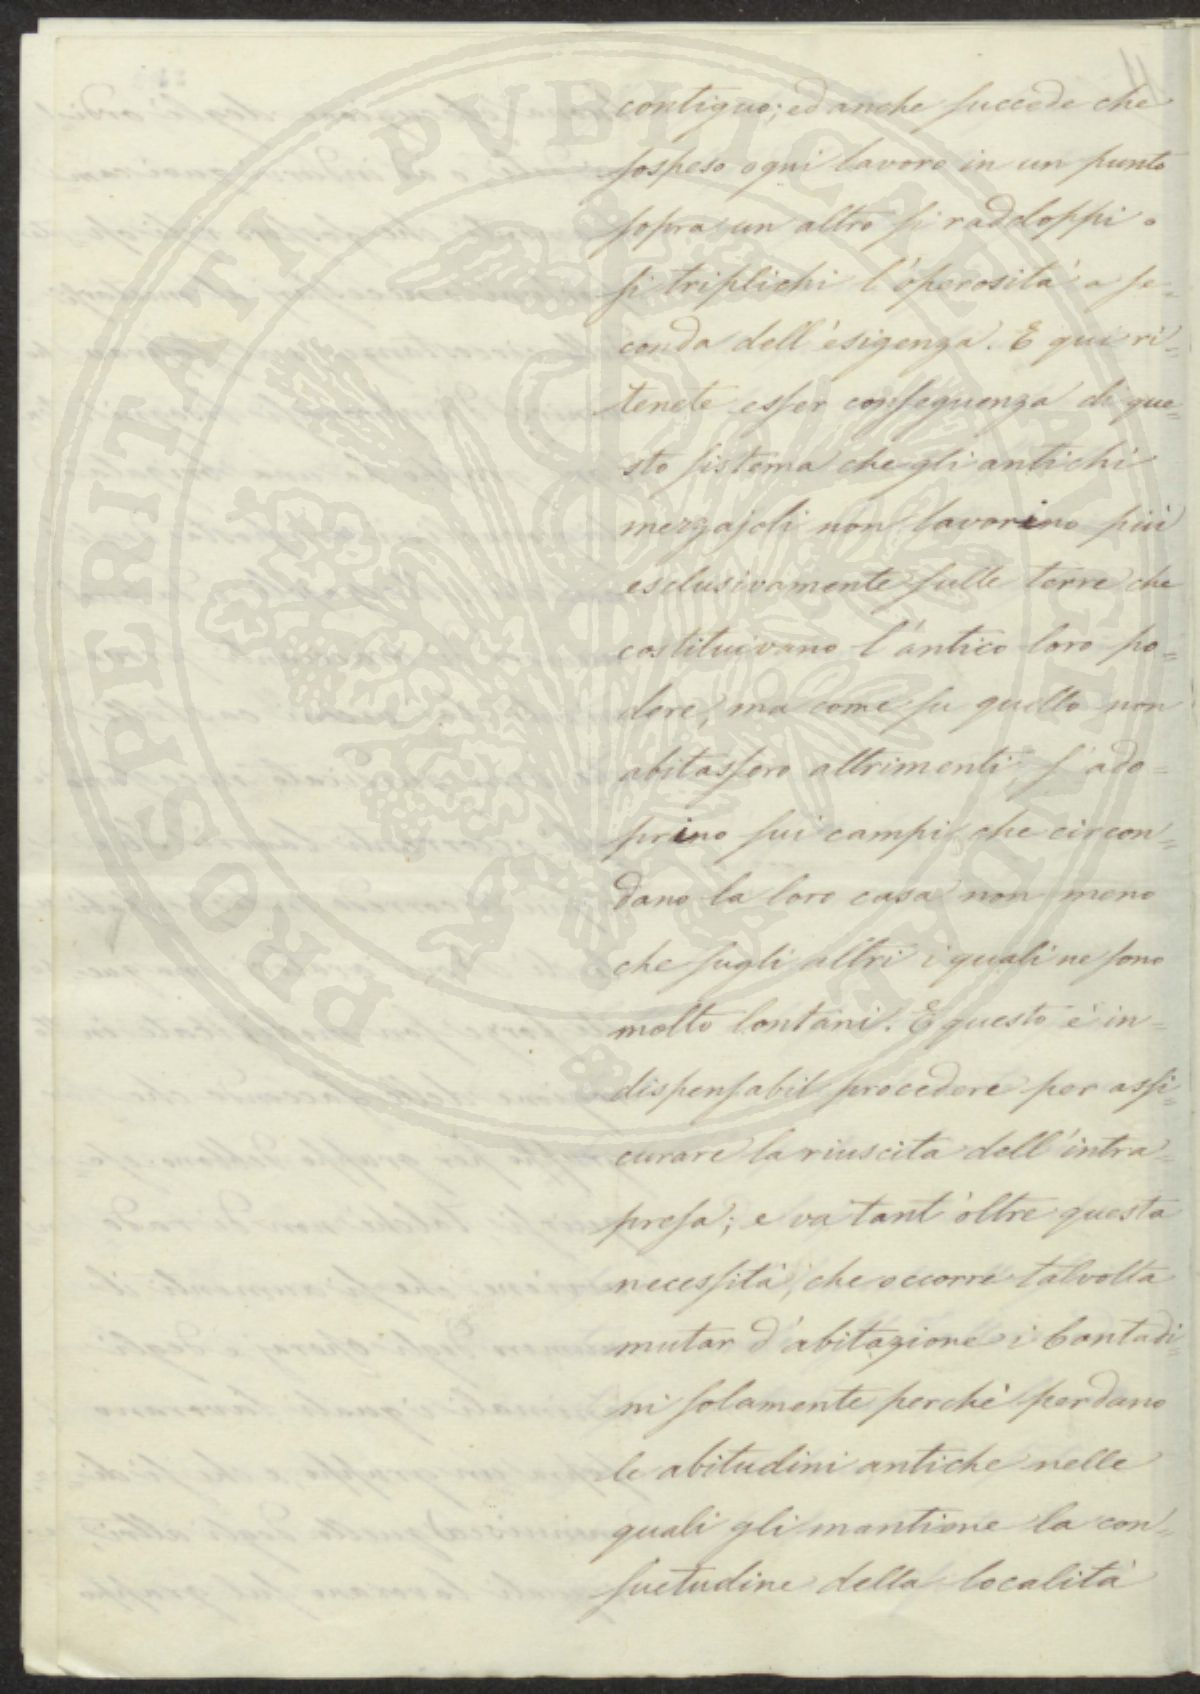 contiguo; ed anche succede che
sospeso ogni lavoro in un punto
sopra un altro si raddoppi o
si triplichi l'operosità a se=
conda dell'esigenza. E qui ri=
tenete esser conseguenza di que=
sto sistema che gli antichi
mezzajoli non lavorino più
esclusivamente sulle terre che
costituivano l'antico loro po=
dere, ma come su quello non
abitassero altrimenti, s'ado=
prino sui campi che circon=
dano la loro casa non meno
che sugli altri i quali ne sono
molto lontani. E questo è in=
dispensabil procedere per assi=
curare la riuscita dell'intra=
presa; e va tant'oltre questa
necessità, che occorre talvolta
mutar d'abitazione i Contadi=
ni solamente perchè perdano
le abitudini antiche nelle
quali gli mantiene la con=
suetudine della località
PROSPERITATI PVBLICAE AVGENDAE